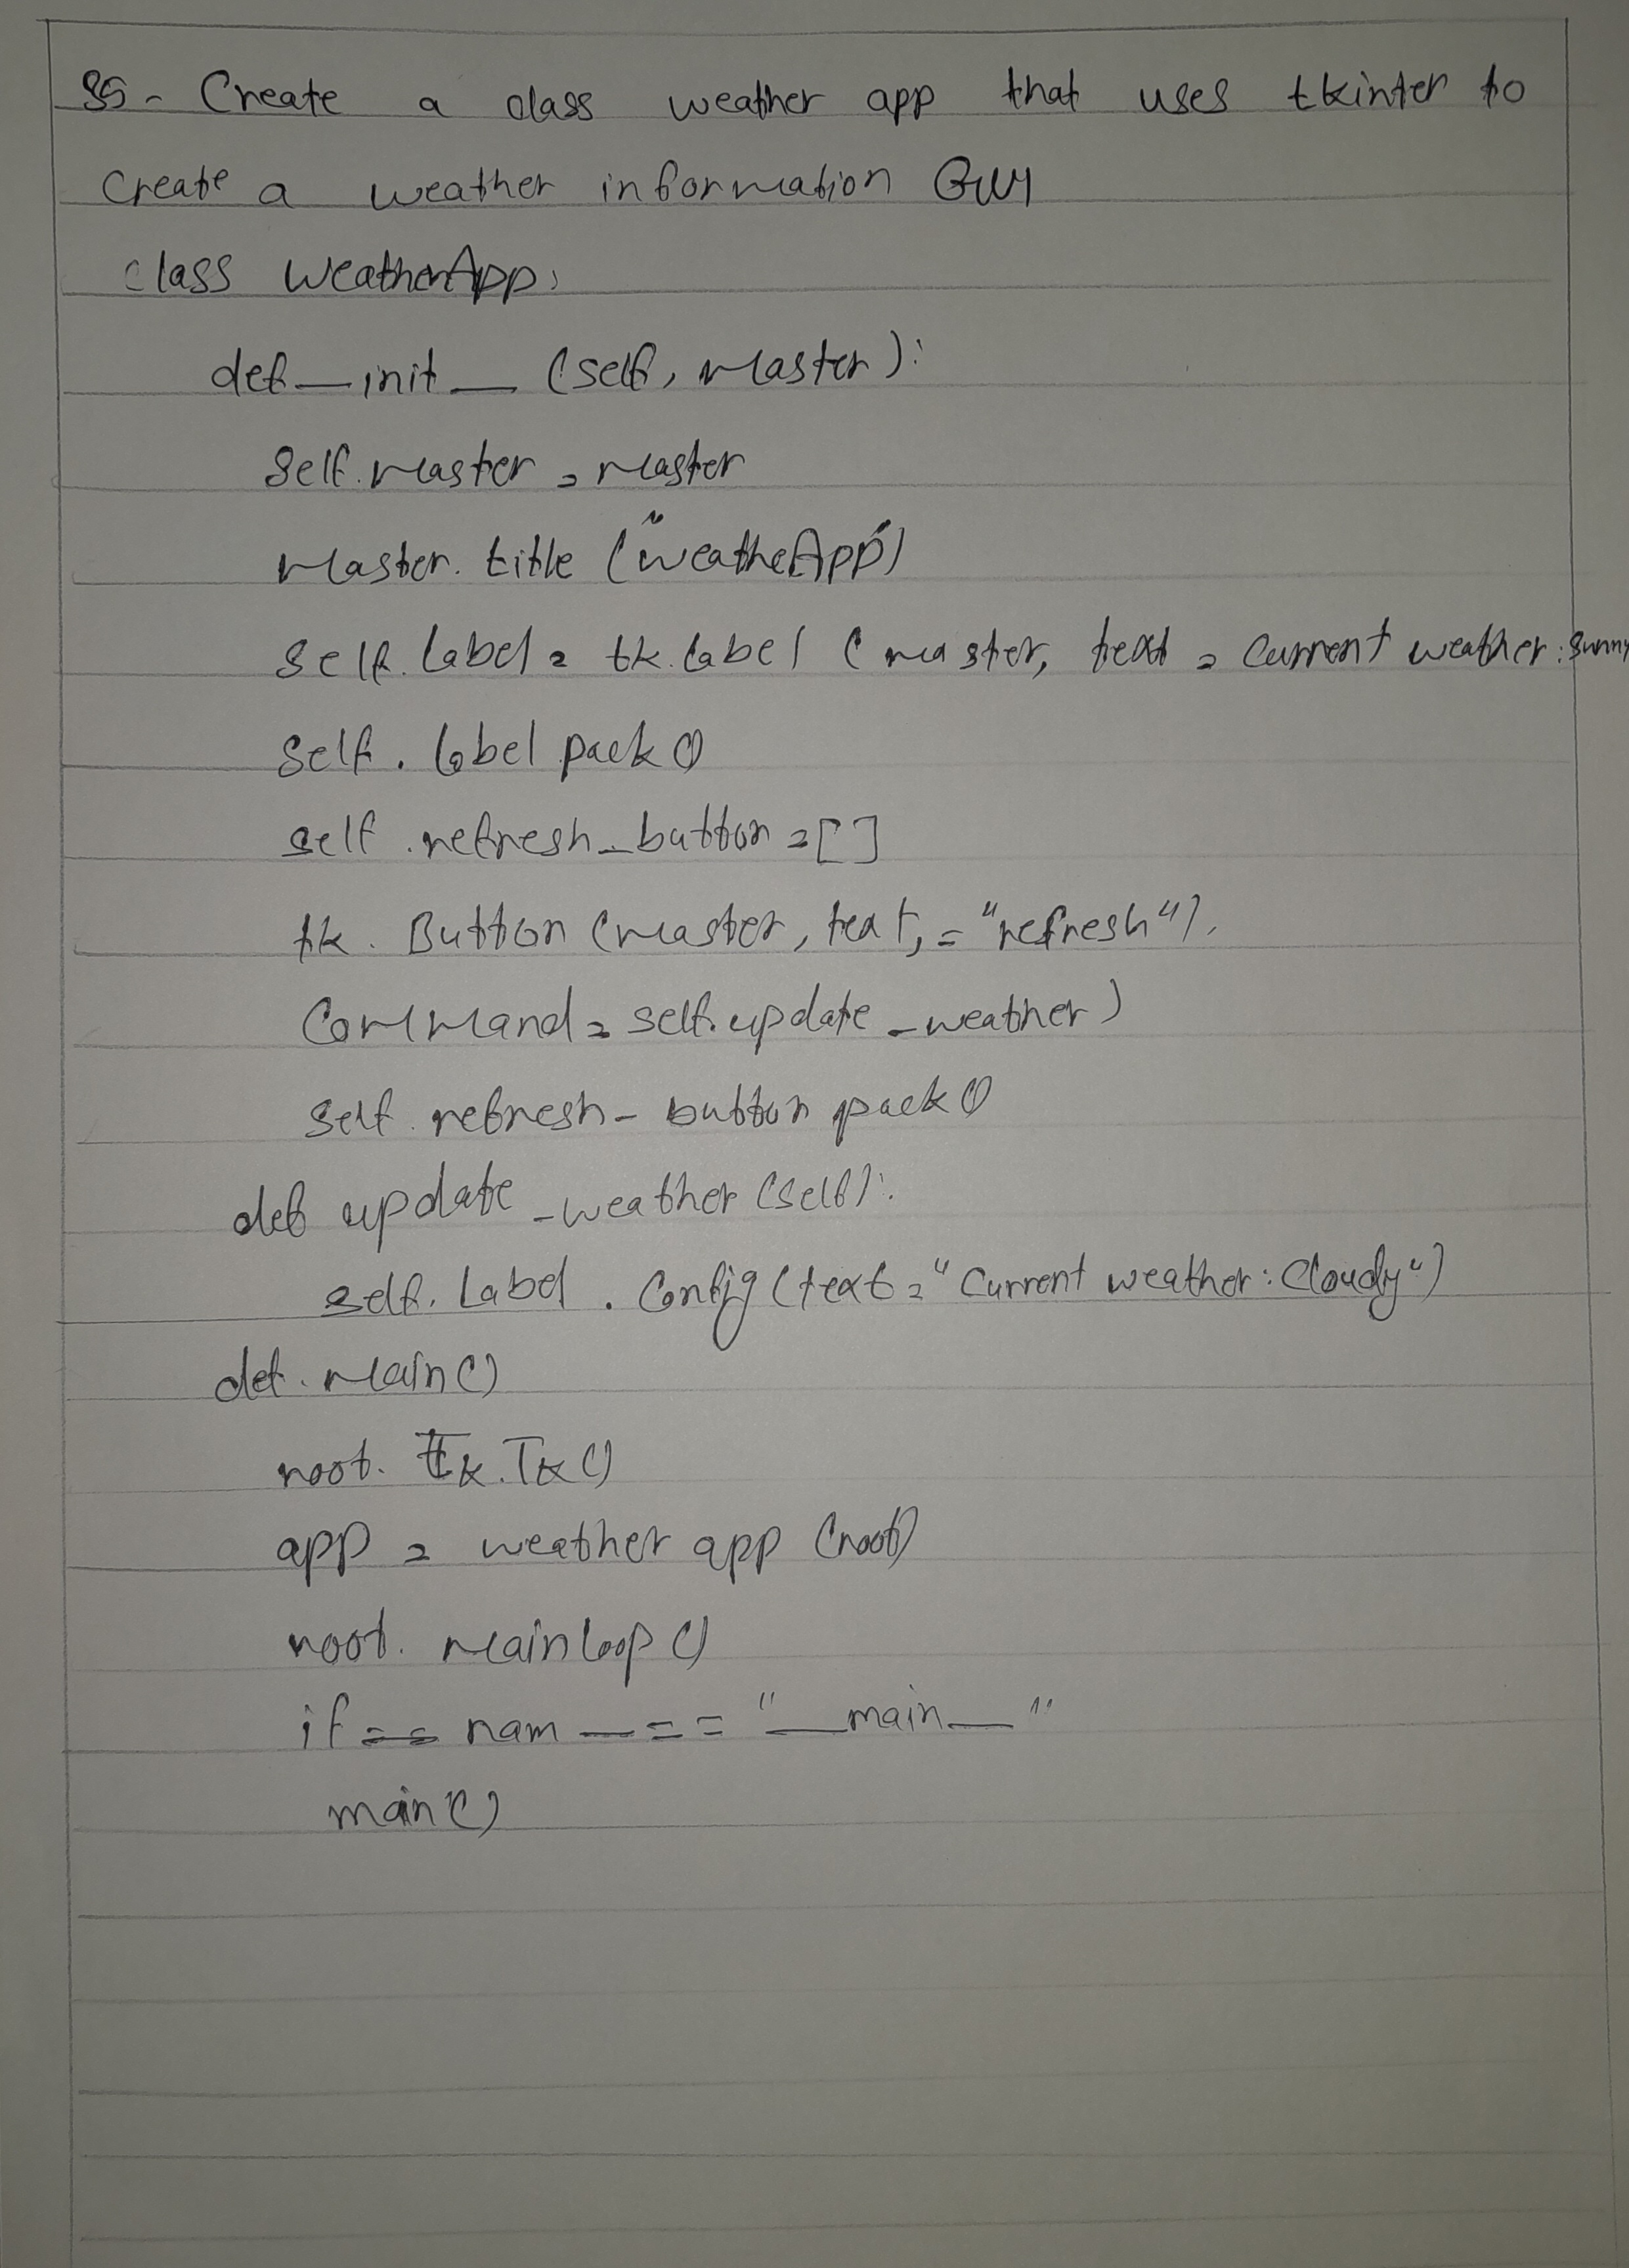 35- Create a class weather app that uses tkinter to
Create a weather information GUI
class WeatherApp:
def __init__ (self, master):
self.master = master
master. title ("weatheApp")
self. label = tk. label (master, text = Current weather: Sunny
self. label pack()
self .refresh_button = []
tk. Button (master, text, = "refresh").
Command = self.update_weather)
self. refresh_ button pack()
def update_weather (self):
self. Label . Config (text = "Current weather: Cloudy")
def. main()
root. tk.Tk()
app = weather app (root)
root. mainloop ()
if == nam __ == "__main__"
main()